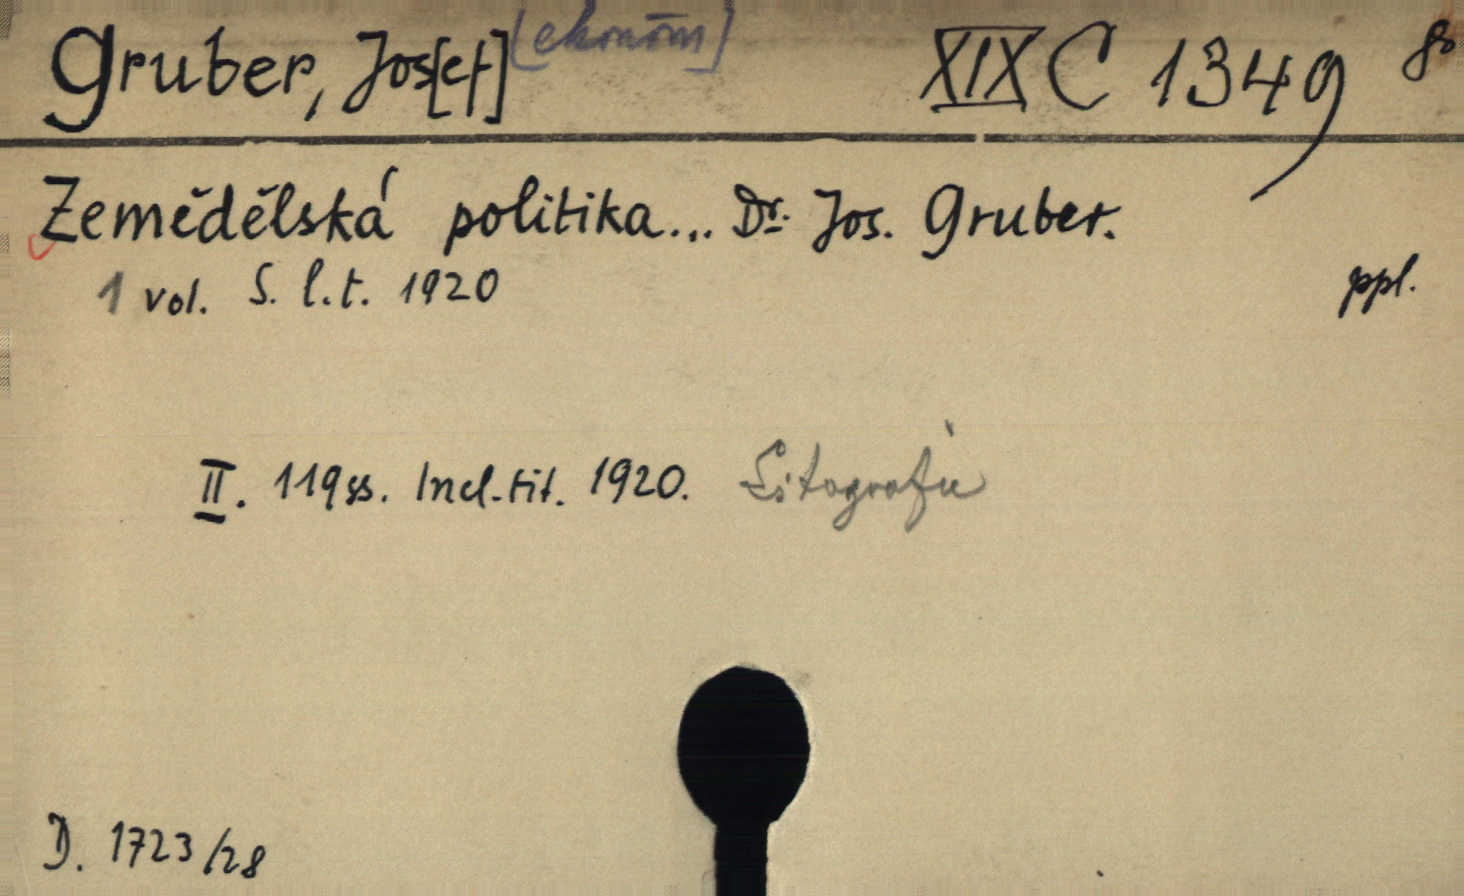 Gruber, Jos[ef] [ekonom] XIX C 1349 8°
Zemědělská politika... Dr. Jos. Gruber.
1 vol. S. l. t. 1920 ppl.
II. 119 ss. Incl. tit. 1920. Litografie
D. 1723/28